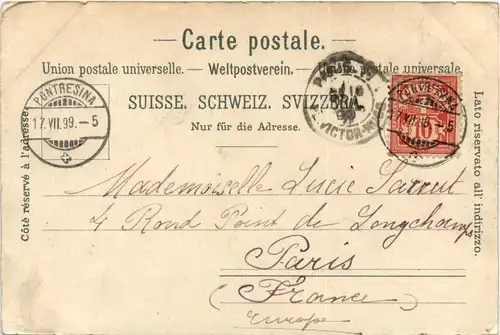 Carte postale.
Union postale universelle. — Weltpostverein. — Unione postale universale.
SUISSE. SCHWEIZ. SVIZZERA.
Nur für die Adresse.
Côté réservé à l'adresse.
Lato riservato all' indirizzo.
PONTRESINA
17.VII.99. – 5
PARIS
VICTOR-HUGO
PONTRESINA
17.VII.99. – 5
10
Mademoiselle Lucie Sarrut
4 Rond Point de Longchamps
Paris
(France)
Europe